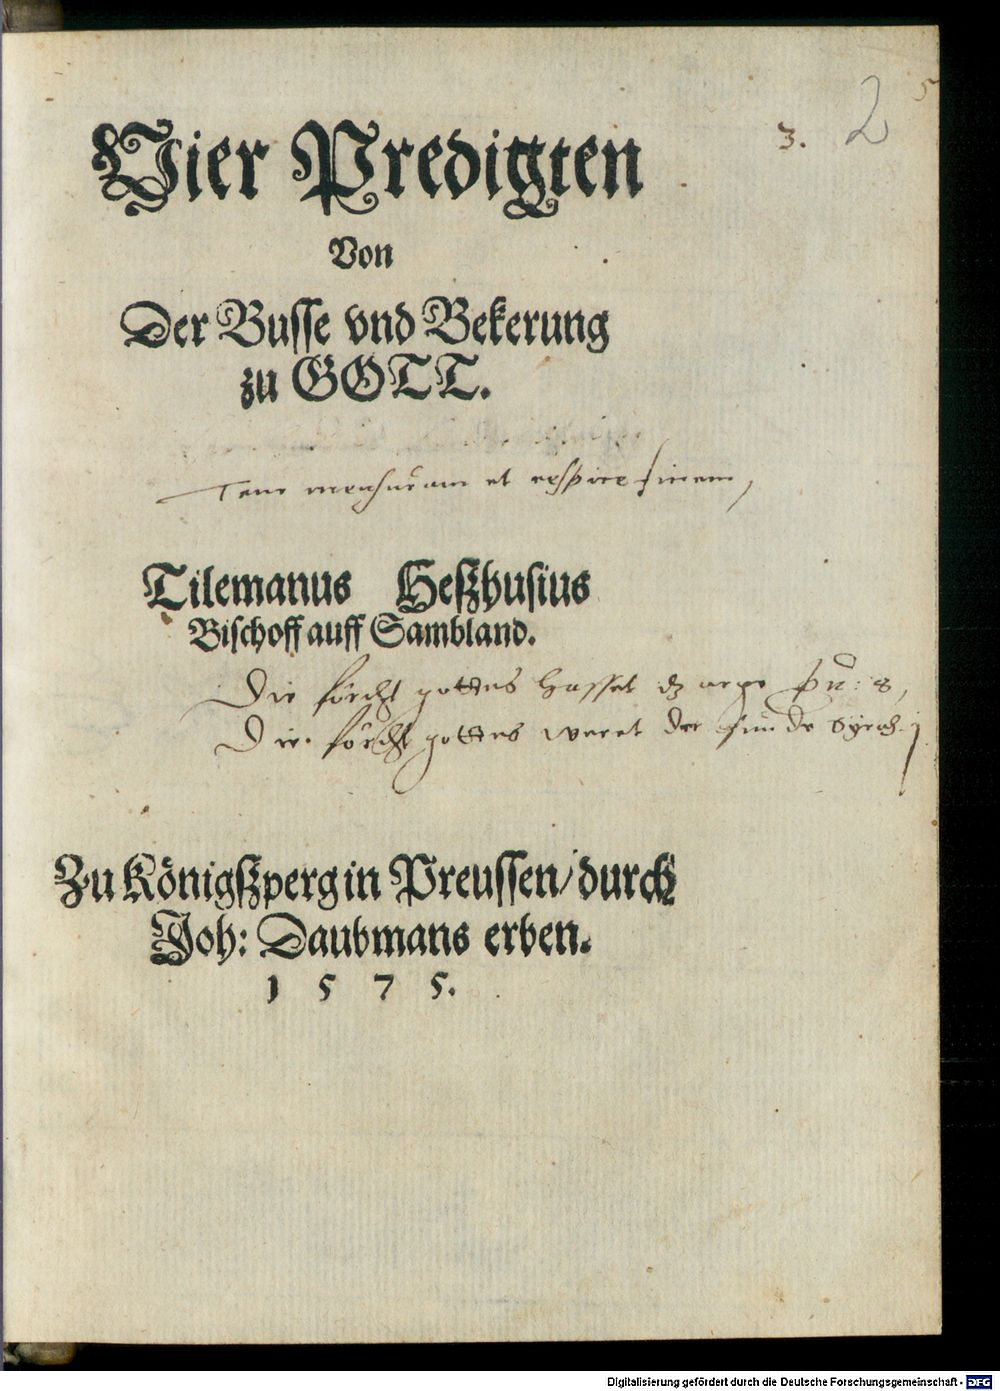 5
2
3.
Vier Predigten
Von
Der Busse vnd Bekerung
zu GOTT.
Tene mensuram et respice finem,
Tilemanus Heßhusius
Bischoff auff Sambland.
Die förcht gottes hasset dz arge : 8,
Die förcht gottes weret der sünde Syrach. j
Zu Königßperg in Preussen/durch
Joh: Daubmans erben.
1575.
Digitalisierung gefördert durch die Deutsche Forschungsgemeinschaft - DFG